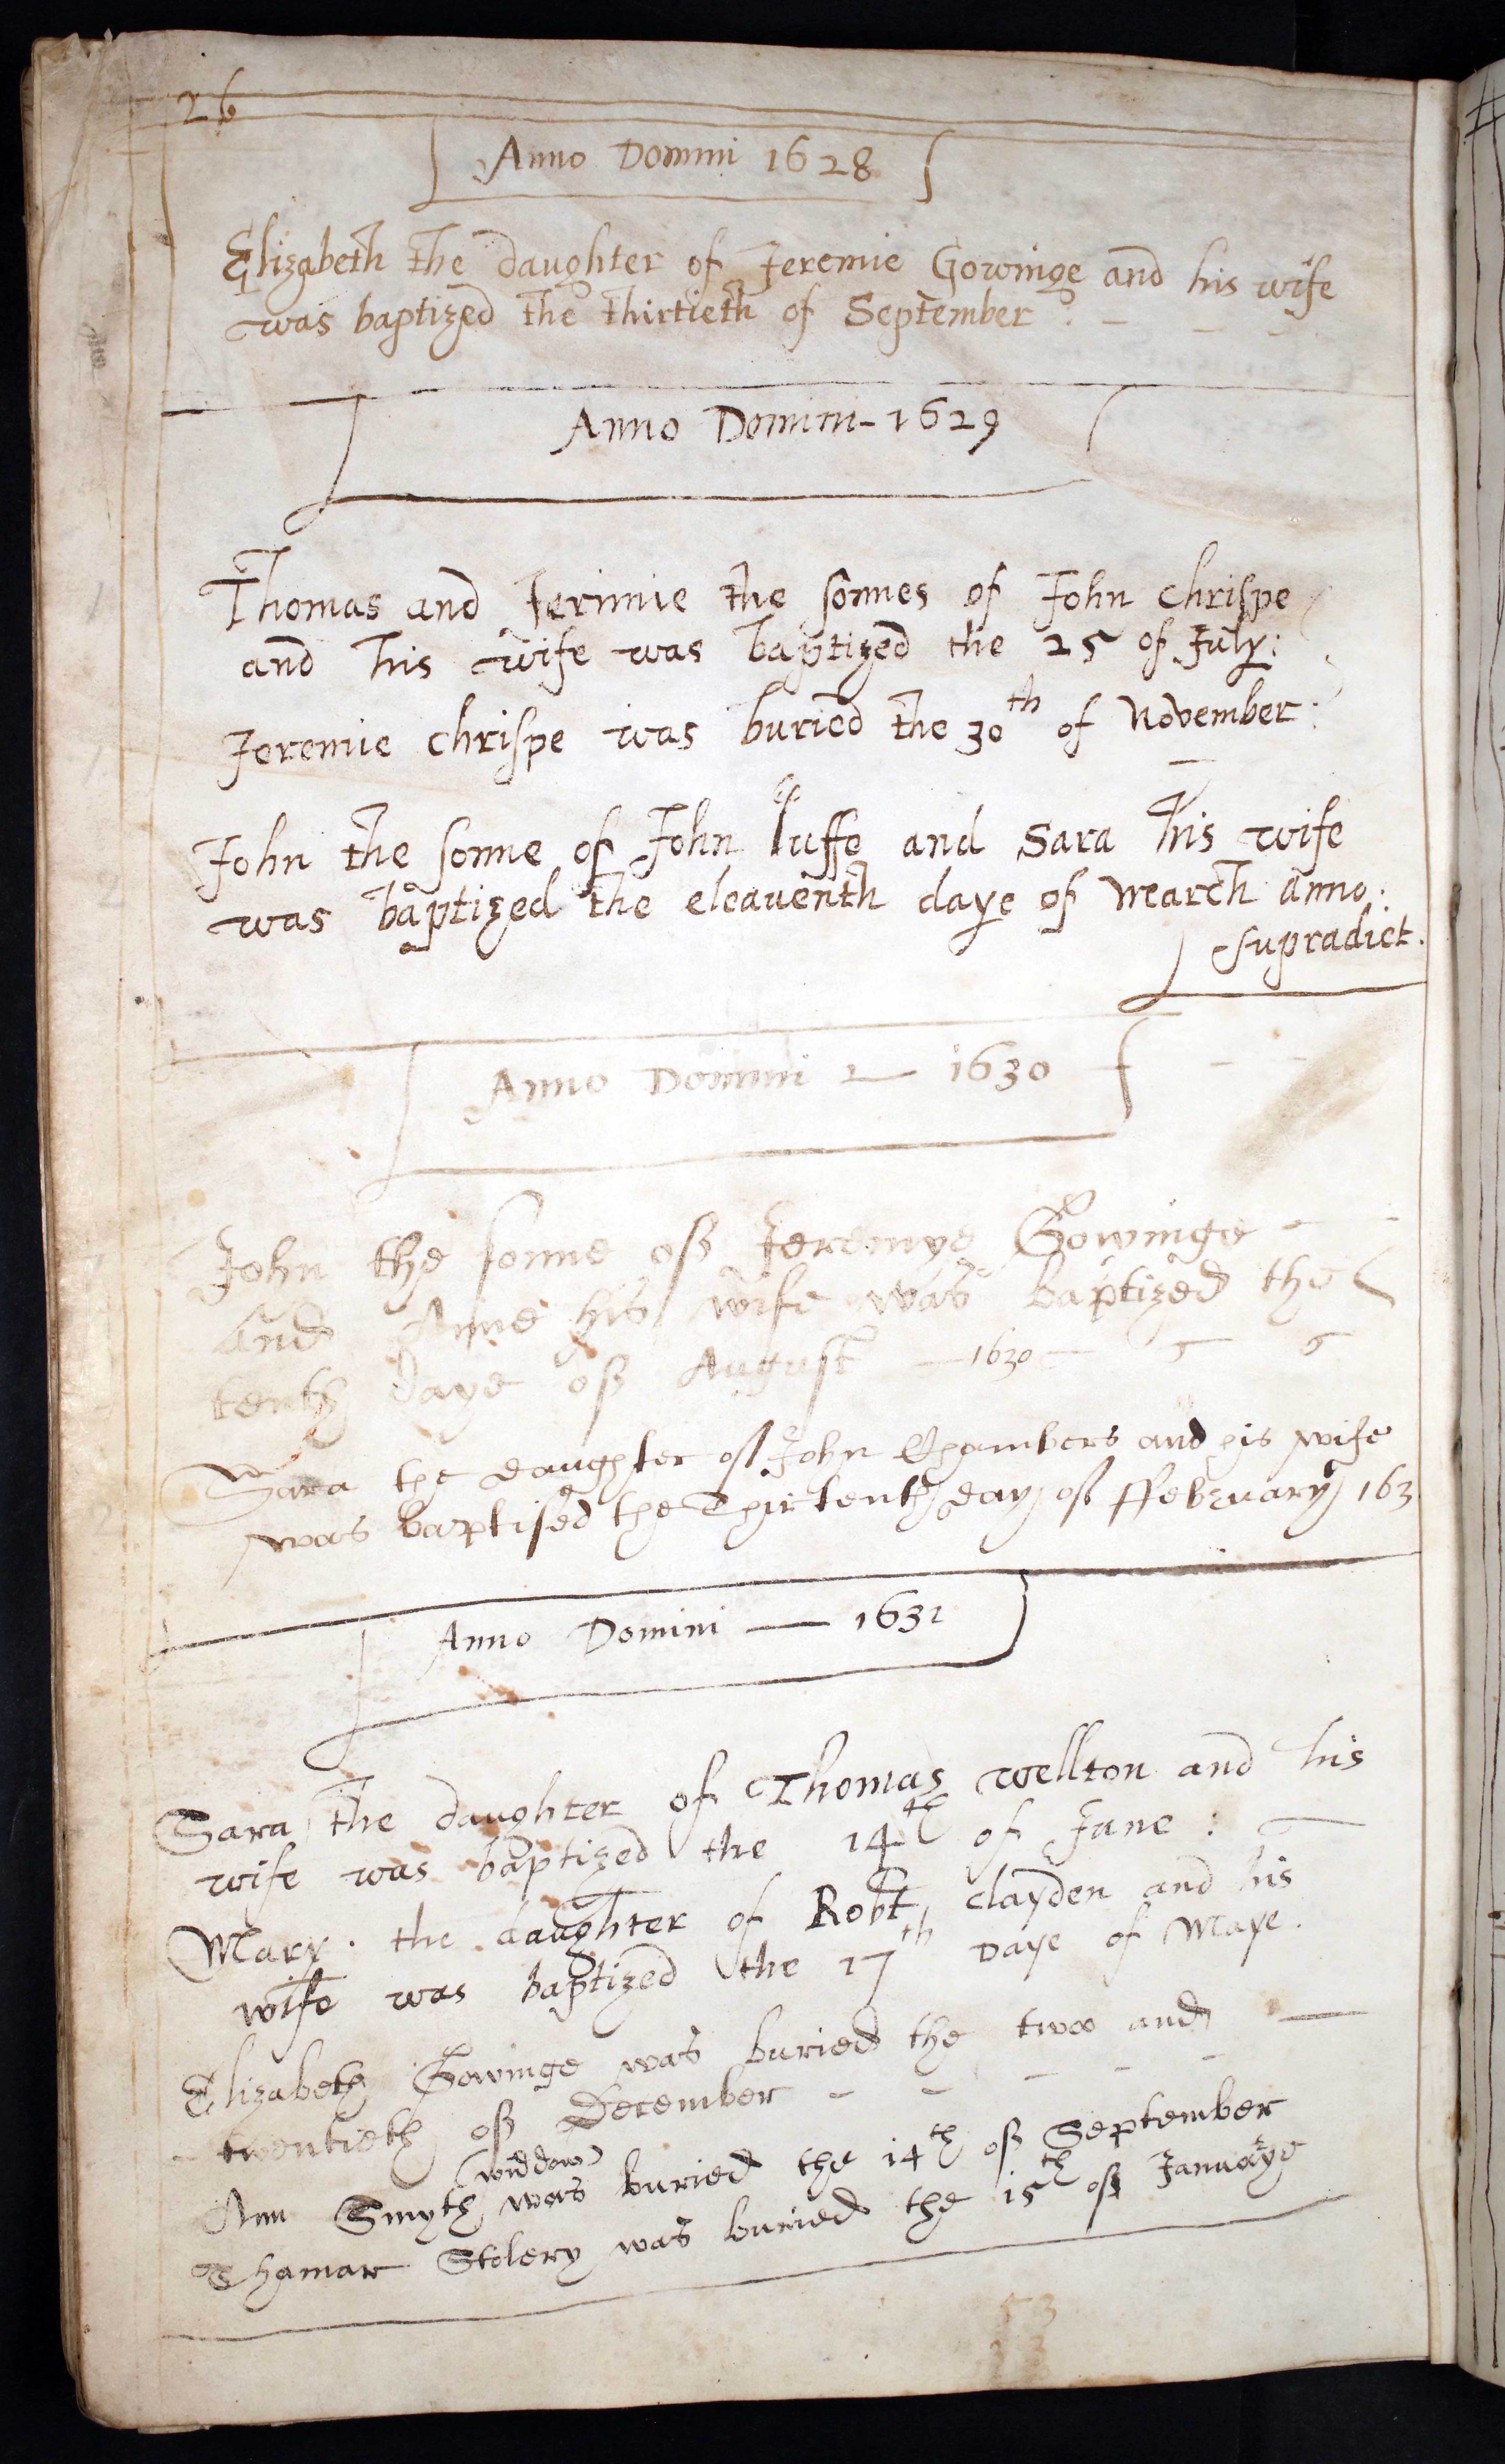 26
Anno Domini 1628
Elizabeth the daughter of Jeremie Gowinge and his wife
was baptized the thirtieth of September :
Anno Domini - 1629
Thomas and Jerimie the sonnes of John Chrispe
and his wife was baptized the 25 of July:
Jeremie Chrispe was buried the 30th of November:
John the sonne of John Tuffe and Sara his wife
was baptized the eleaventh daye of March anno:
supradict.
Anno Domini 1630
John the sonne off Jeremye Gowinge
and Anne his wife was baptized the
tenth daye off August 1630
Sara the daughter off John Chambers and his wife
was baptised the Thirtenth day off ffebruary 163
Anno Domini — 1631
Sara the daughter of Thomas Wellton and his
wife was baptized the 14th of June :
Mary . the daughter of Robt Clayden and his
wife was baptized the 17th Daye of Maye .
Elizabeth Gowinge was buried the twoo and
twentieth off December
widdow
Ann Smyth was buried the 14th off September
Thamar Stolery was buried the 15th off Januarye
53